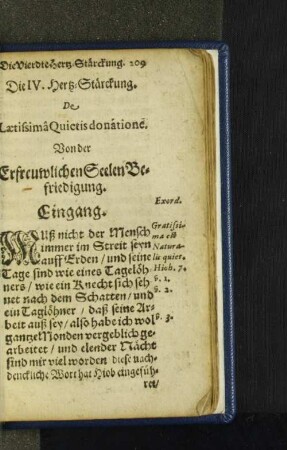 Die Vierdte Hertz-Stärckung. 209
Die IV. Hertz-Stärckung.
De
Lætissimâ Quietis donatione.
Von der
Erfreuwlichen Seelen Be-
friedigung.
Eingang.
Exord.
MUß nicht der Mensch
immer im Streit seyn
auff Erden / und seine
Tage sind wie eines Taglöh-
ners / wie ein Knecht sich seh-
net nach dem Schatten / und
ein Taglöhner / daß seine Ar-
beit auß sey / also habe ich wol
gantze Monden vergeblich ge-
arbeitet / und elender Nächt
sind mir viel worden diese nach-
denckliche Wort hat Hiob eingefüh-
ret /
Gratissi-
ma est
Natura-
lis quies.
Hiob. 7.
v. 1.
v. 2.
v. 3.